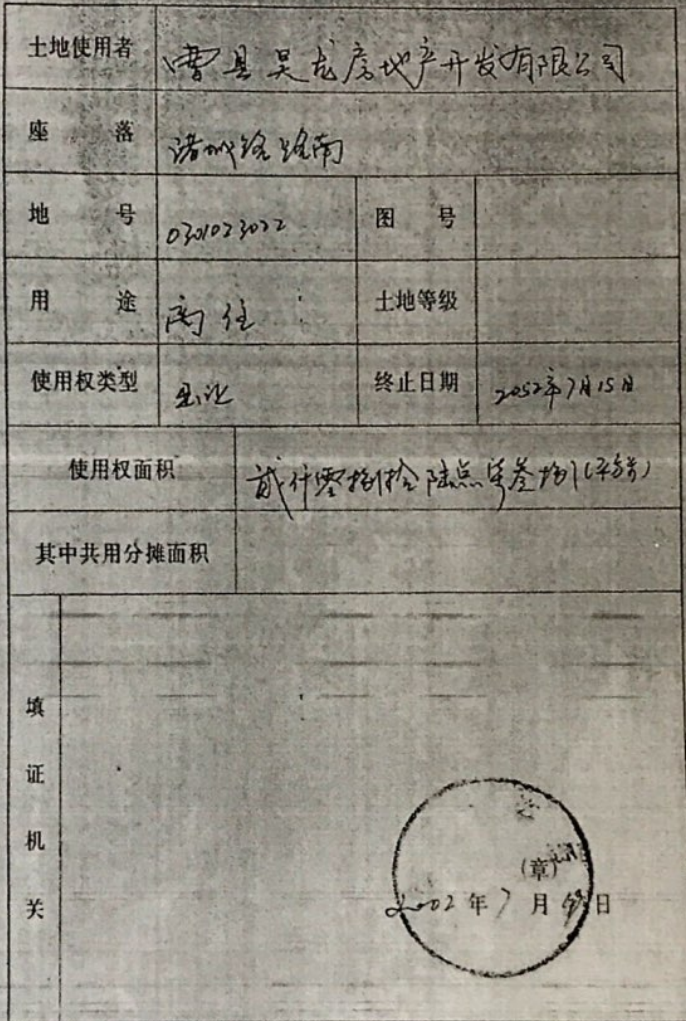 土地使用者 曹县吴龙房地产开发有限公司
座 落 诸城路路南
地 号 0301023022 图 号
用 途 商住 土地等级
使用权类型 出让 终止日期 2052年7月15日
使用权面积 贰仟零捌拾陆点 叁捌(平方米)
其中共用分摊面积
填证机关
(章)
2002年7月 日